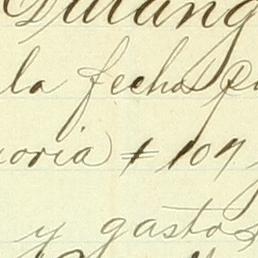 Durang
la fecha p
oria # 107
y gastos